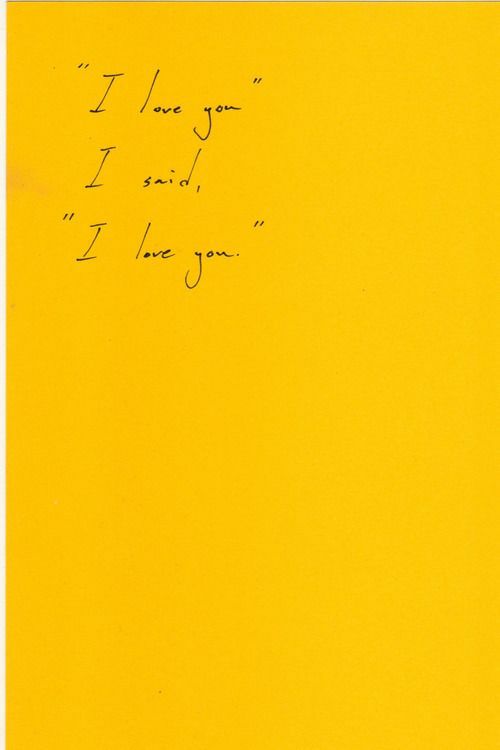 "I love you"
I said,
"I love you."